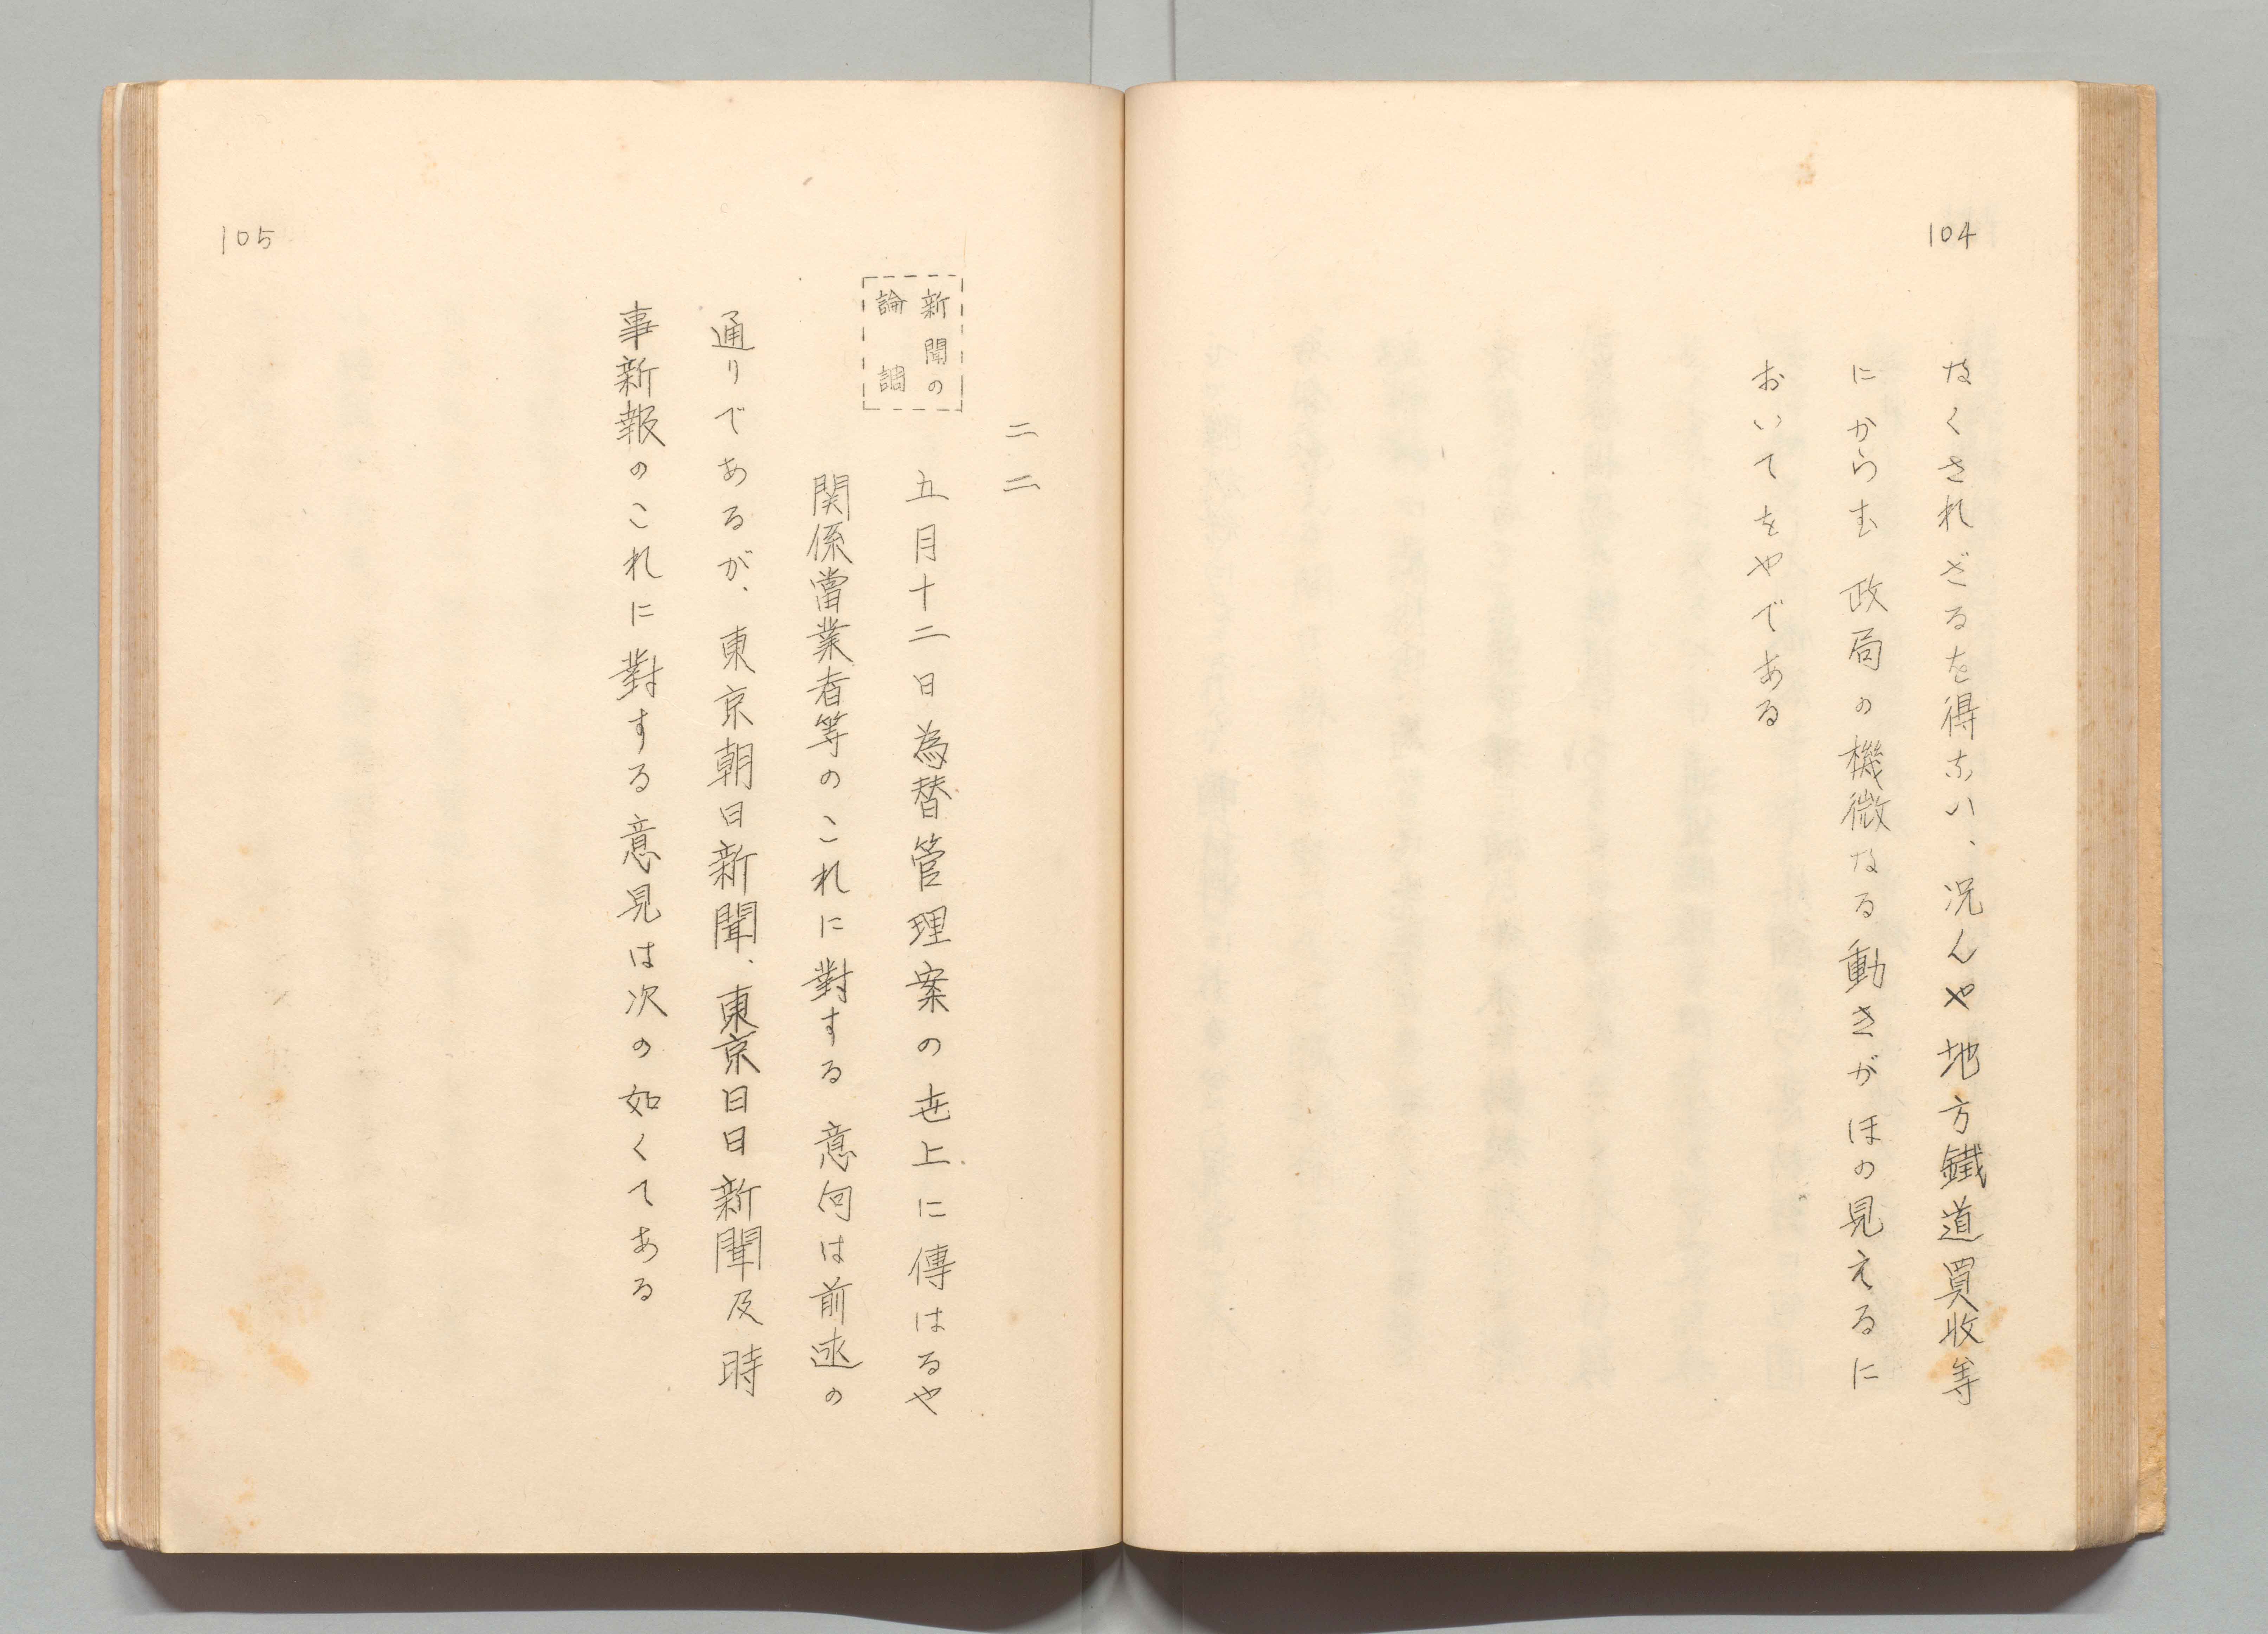 104
なくされざるを得ない、况んや地方鐵道買收等
にからむ政局の機微なる動きがほの見えるに
おいてをやである
二二
新聞の
論調
五月十二日為替管理案の世上に傳はるや
関係當業者等のこれに對する意向は前述の
通りであるが、東京朝日新聞、東京日日新聞及時
事新報のこれに對する意見は次の如くてある
105